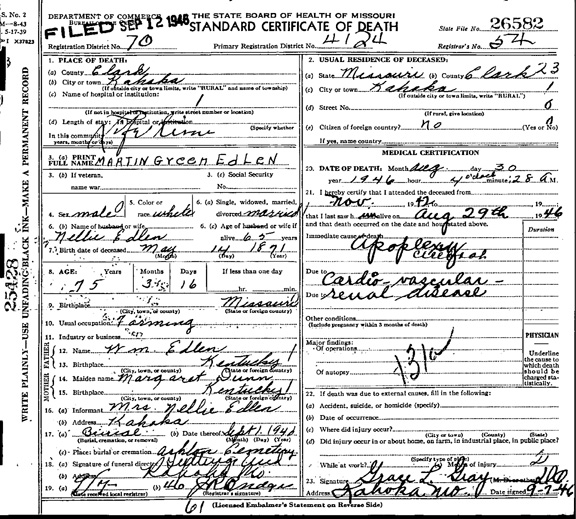 S. No. 2
M—8-43
5-17-39
X37823
DEPARTMENT OF COMMERCE
THE STATE BOARD OF HEALTH OF MISSOURI
FILED SEP 12 1946
STANDARD CERTIFICATE OF DEATH
State File No. 26582
Registration District No. 70
Primary Registration District No. 4124
Registrar's No. 54
WRITE PLAINLY—USE UNFADING BLACK INK—MAKE A PERMANENT RECORD
25428
1. PLACE OF DEATH:
(a) County Clark
(b) City or town Kahoka
(If outside city or town limits, write "RURAL" and name of township)
(c) Name of hospital or institution:
(If not in hospital or institution, write street number or location)
(d) Length of stay: In hospital or institution
(Specify whether
In this community Life Time
years, months or days)
3. (a) PRINT FULL NAME MARTIN GREEN EDLEN
3. (b) If veteran, name war
3. (c) Social Security No.
4. Sex male
5. Color or race white
6. (a) Single, widowed, married, divorced married
6. (b) Name of husband or wife Nellie Edlen
6. (c) Age of husband or wife if alive 65 years
7. Birth date of deceased May 14 1871
(Month) (Day) (Year)
8. AGE: Years Months Days If less than one day
75 3 16 hr. min.
9. Birthplace Missouri
(City, town, or county) (State or foreign country)
10. Usual occupation Farming
11. Industry or business
FATHER
12. Name Wm. Edlen
13. Birthplace Kentucky
(City, town, or county) (State or foreign country)
MOTHER
14. Maiden name Margaret Dunn
15. Birthplace Kentucky
(City, town, or county) (State or foreign country)
16. (a) Informant Mrs. Nellie Edlen
(b) Address Kahoka
17. (a) Burial (b) Date thereof Sept 1 194
(Burial, cremation, or removal) (Month) (Day) (Year)
(c) Place: burial or cremation Ashton Cemetery
18. (a) Signature of funeral director
(b) Address Kahoka Mo.
19. (a) 46 (b)
(Date received local registrar) (Registrar's signature)
2. USUAL RESIDENCE OF DECEASED:
(a) State Missouri (b) County Clark 23
(c) City or town Kahoka 1
(If outside city or town limits, write "RURAL")
(d) Street No. 0
(If rural, give location)
(e) Citizen of foreign country? No (Yes or No)
If yes, name country
MEDICAL CERTIFICATION
20. DATE OF DEATH: Month Aug day 30
year 1946 hour 4 o'clock minute 28 A M.
21. I hereby certify that I attended the deceased from
Nov. 19
that I last saw him alive on Aug 29th 1946
and that death occurred on the date and hour stated above.
Duration
Immediate cause of death Apoplexy
cerebral
Due to Cardio-vascular-
Due to renal disease
Other conditions
(Include pregnancy within 3 months of death)
PHYSICIAN
Major findings:
Of operations
131a
Of autopsy
Underline the cause to which death should be charged statistically.
22. If death was due to external causes, fill in the following:
(a) Accident, suicide, or homicide (specify)
(b) Date of occurrence
(c) Where did injury occur?
(City or town) (County) (State)
(d) Did injury occur in or about home, on farm, in industrial place, in public place?
(Specify type of place)
While at work? Means of injury
23. Signature Grace L. Gray
Address Kahoka Mo. Date signed 9-7-46
61 (Licensed Embalmer's Statement on Reverse Side)